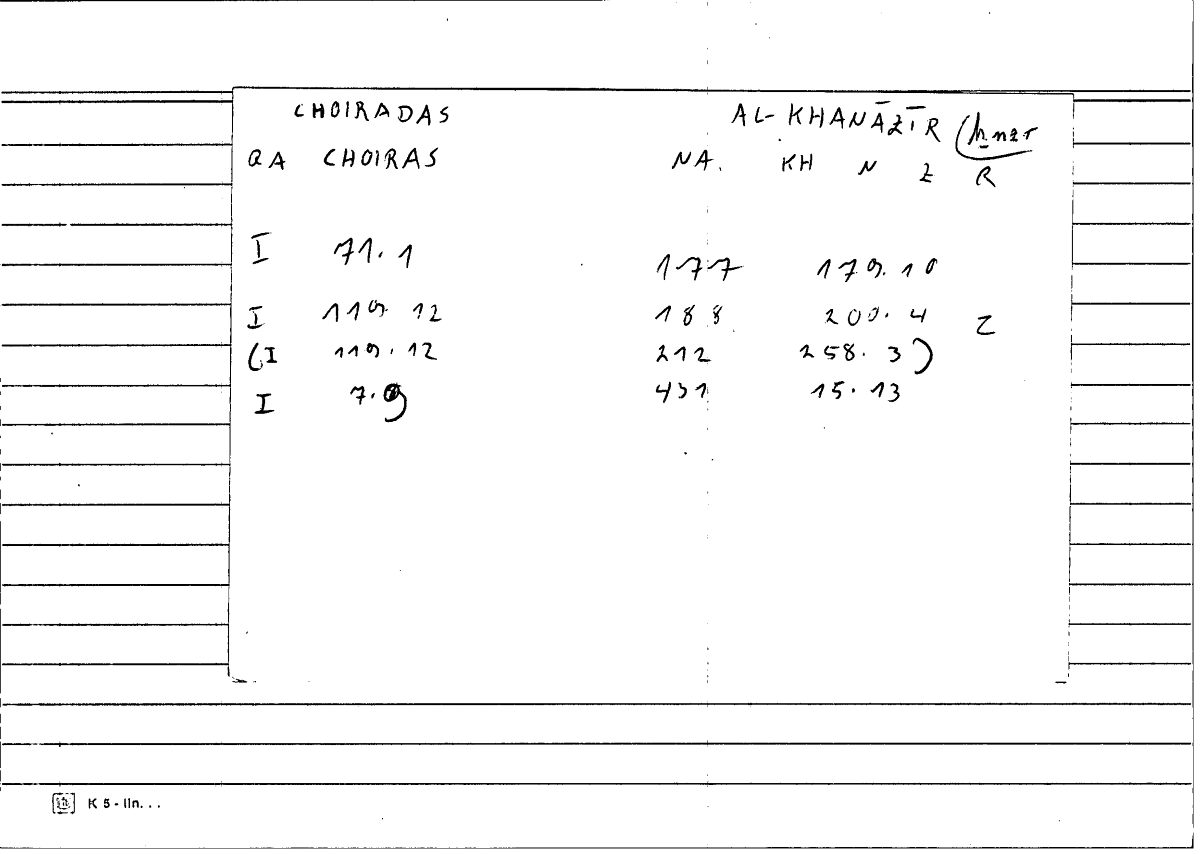 CHOIRADAS AL-KHANĀZĪR (ḫnzr
QA CHOIRAS NA. KH N Z R
I 71.1 177 179.10
I 119.12 188 200.4 Z
(I 119.12 212 258.3)
I 7.9 431 15.13
K 5 - lln...